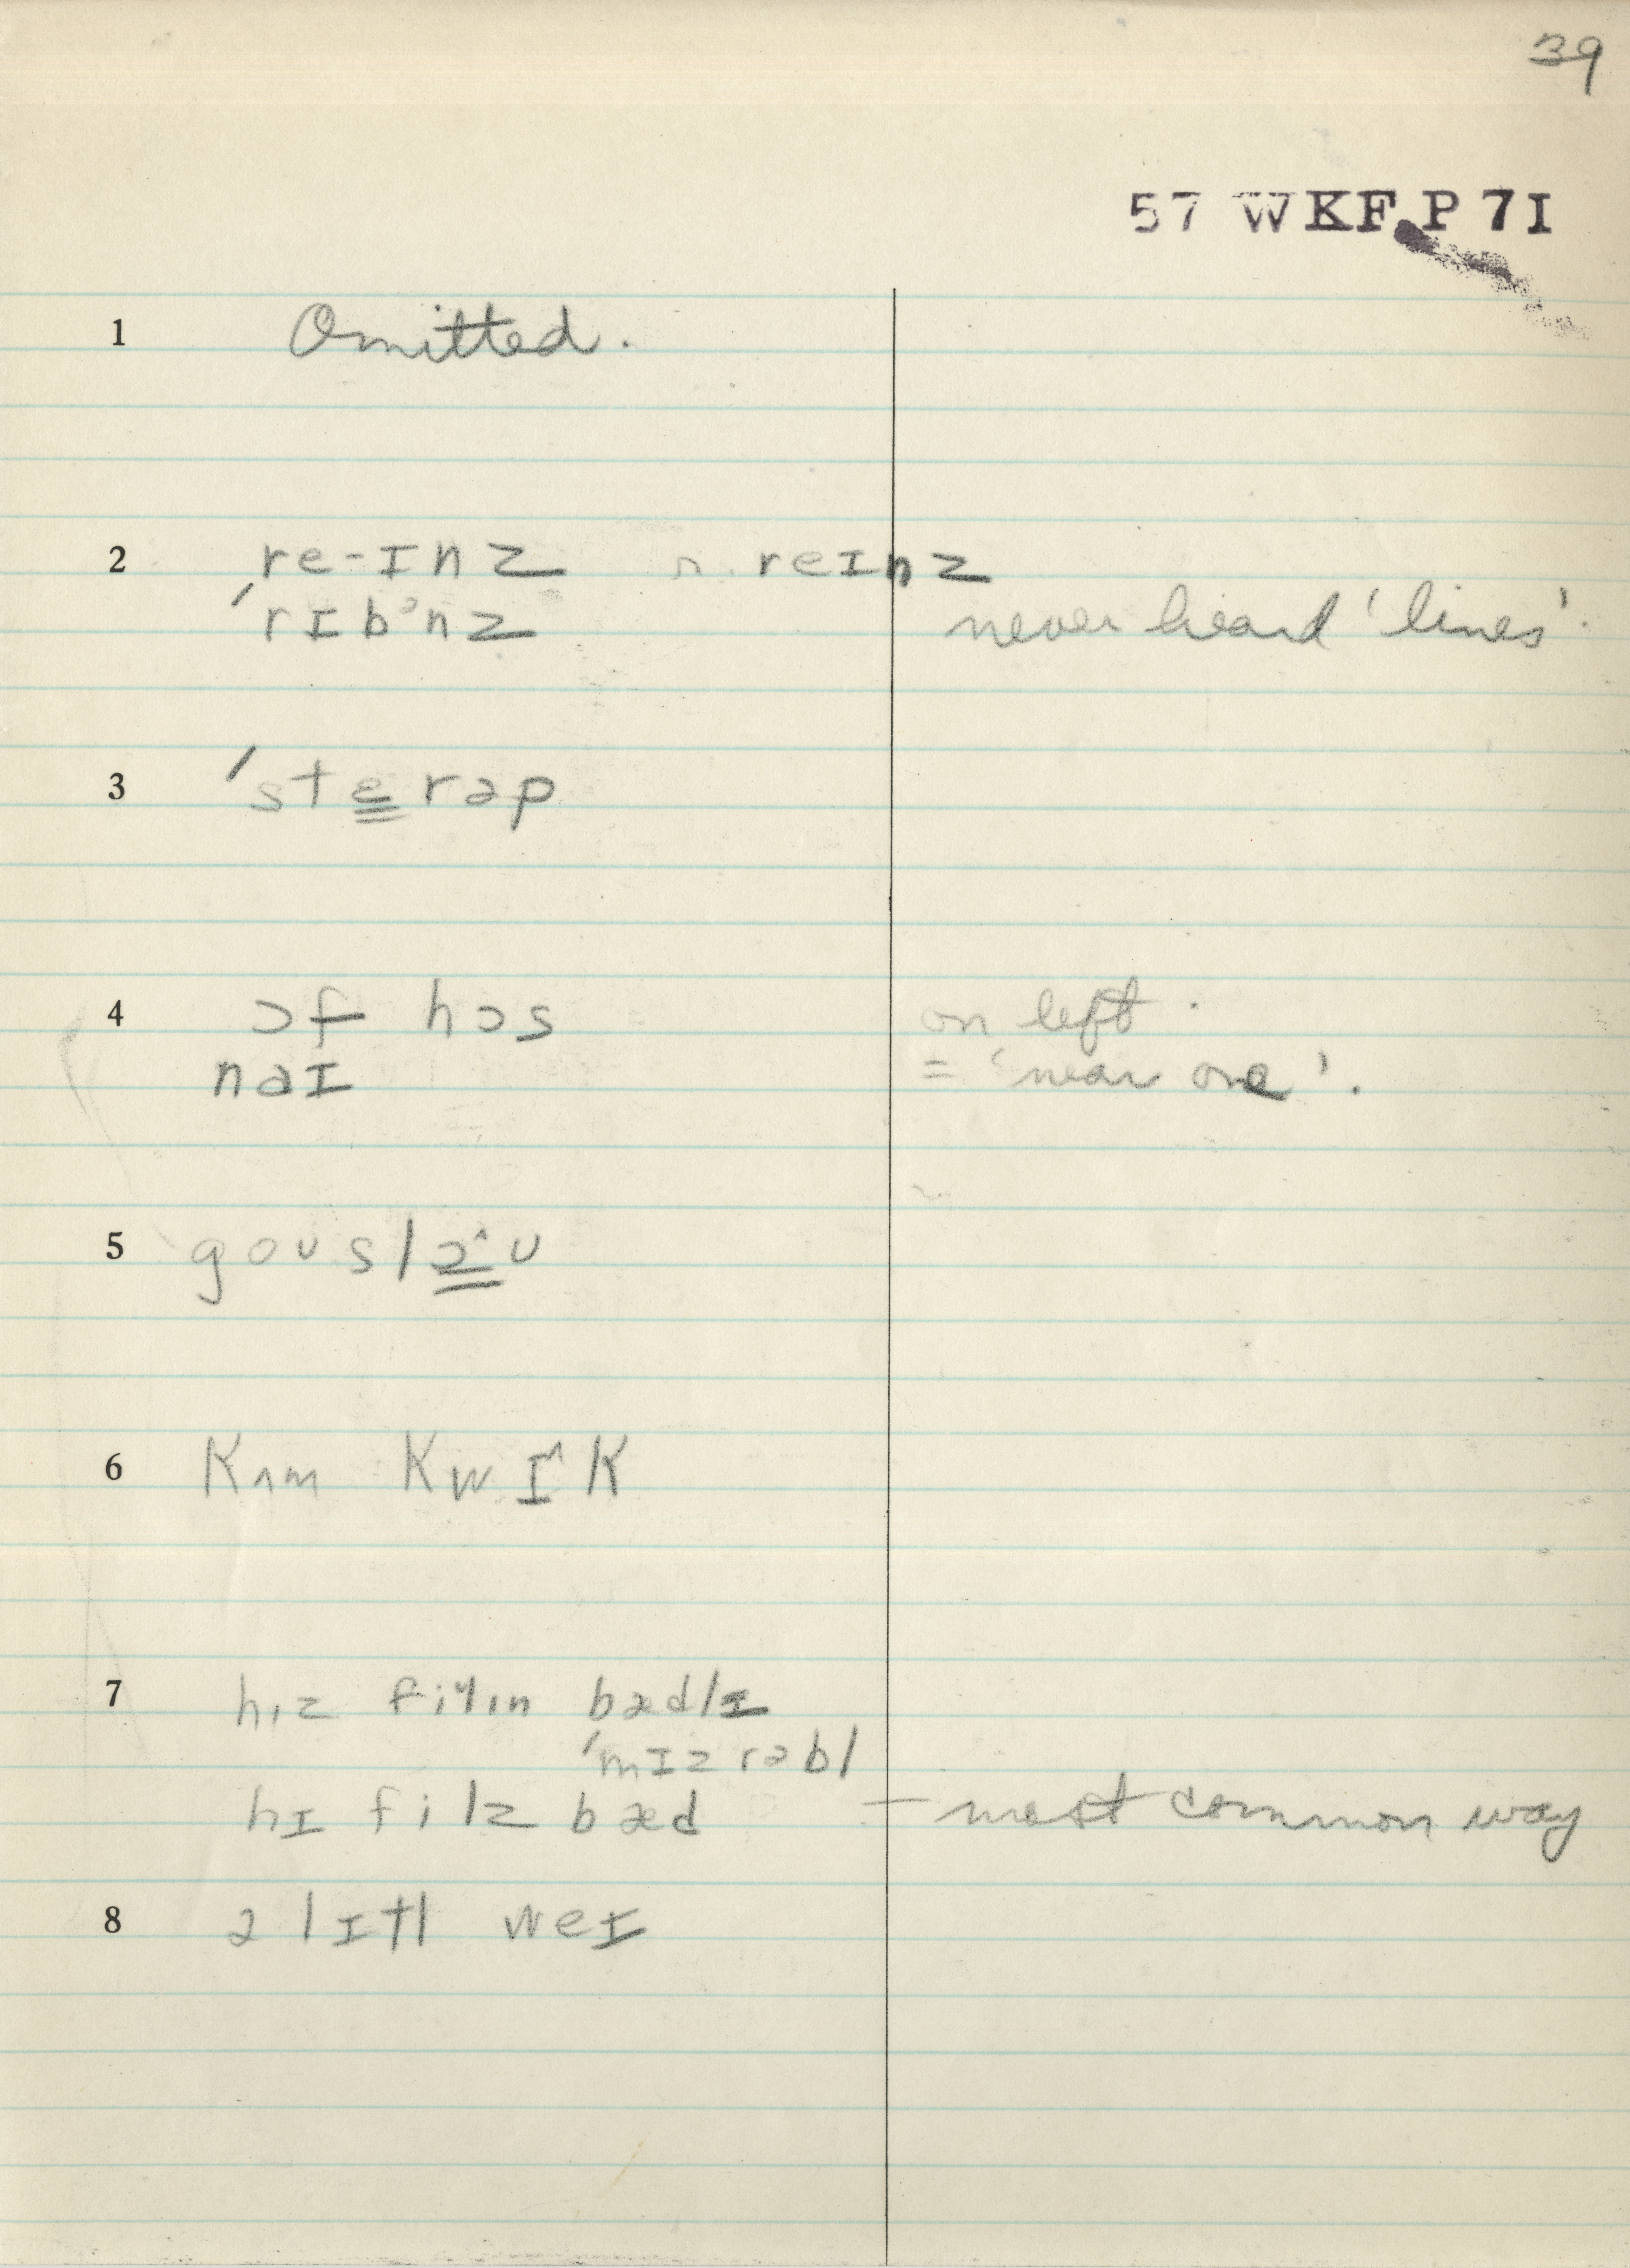 39
57 WKF P 7I
1 Omitted.
2 re-ɪnz r. reɪnz
ˈrɪbᵊnz never heard 'lines'.
3 ˈste̳rəp
4 ɔf hɔs on left.
naɪ = 'near one'.
5 goʊ slɔ̳˄ʊ
6 Kʌm Kwɪ˄K
7 hɪz fiyɪn bædlɪ
ˈmɪzrəbl
hɪ filz bæd – most common way
8 ə lɪtl weɪ